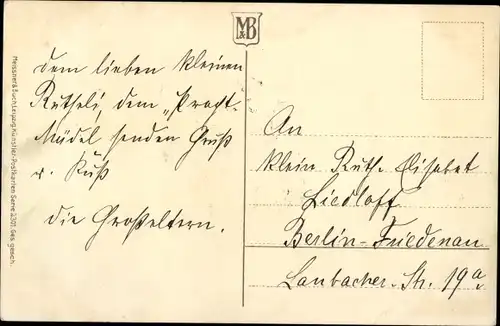 M&B
Meissner & Buch, Leipzig. Künstler-Postkarten Serie 2321. Ges. gesch.
Dem lieben kleinen
Rutheli, dem „Pracht-
Mädel senden Gruß
u. Kuß
die Großeltern.
An
klein Ruth-Elisabet
Liedloff
Berlin-Friedenau
Laubacher-Str. 19a